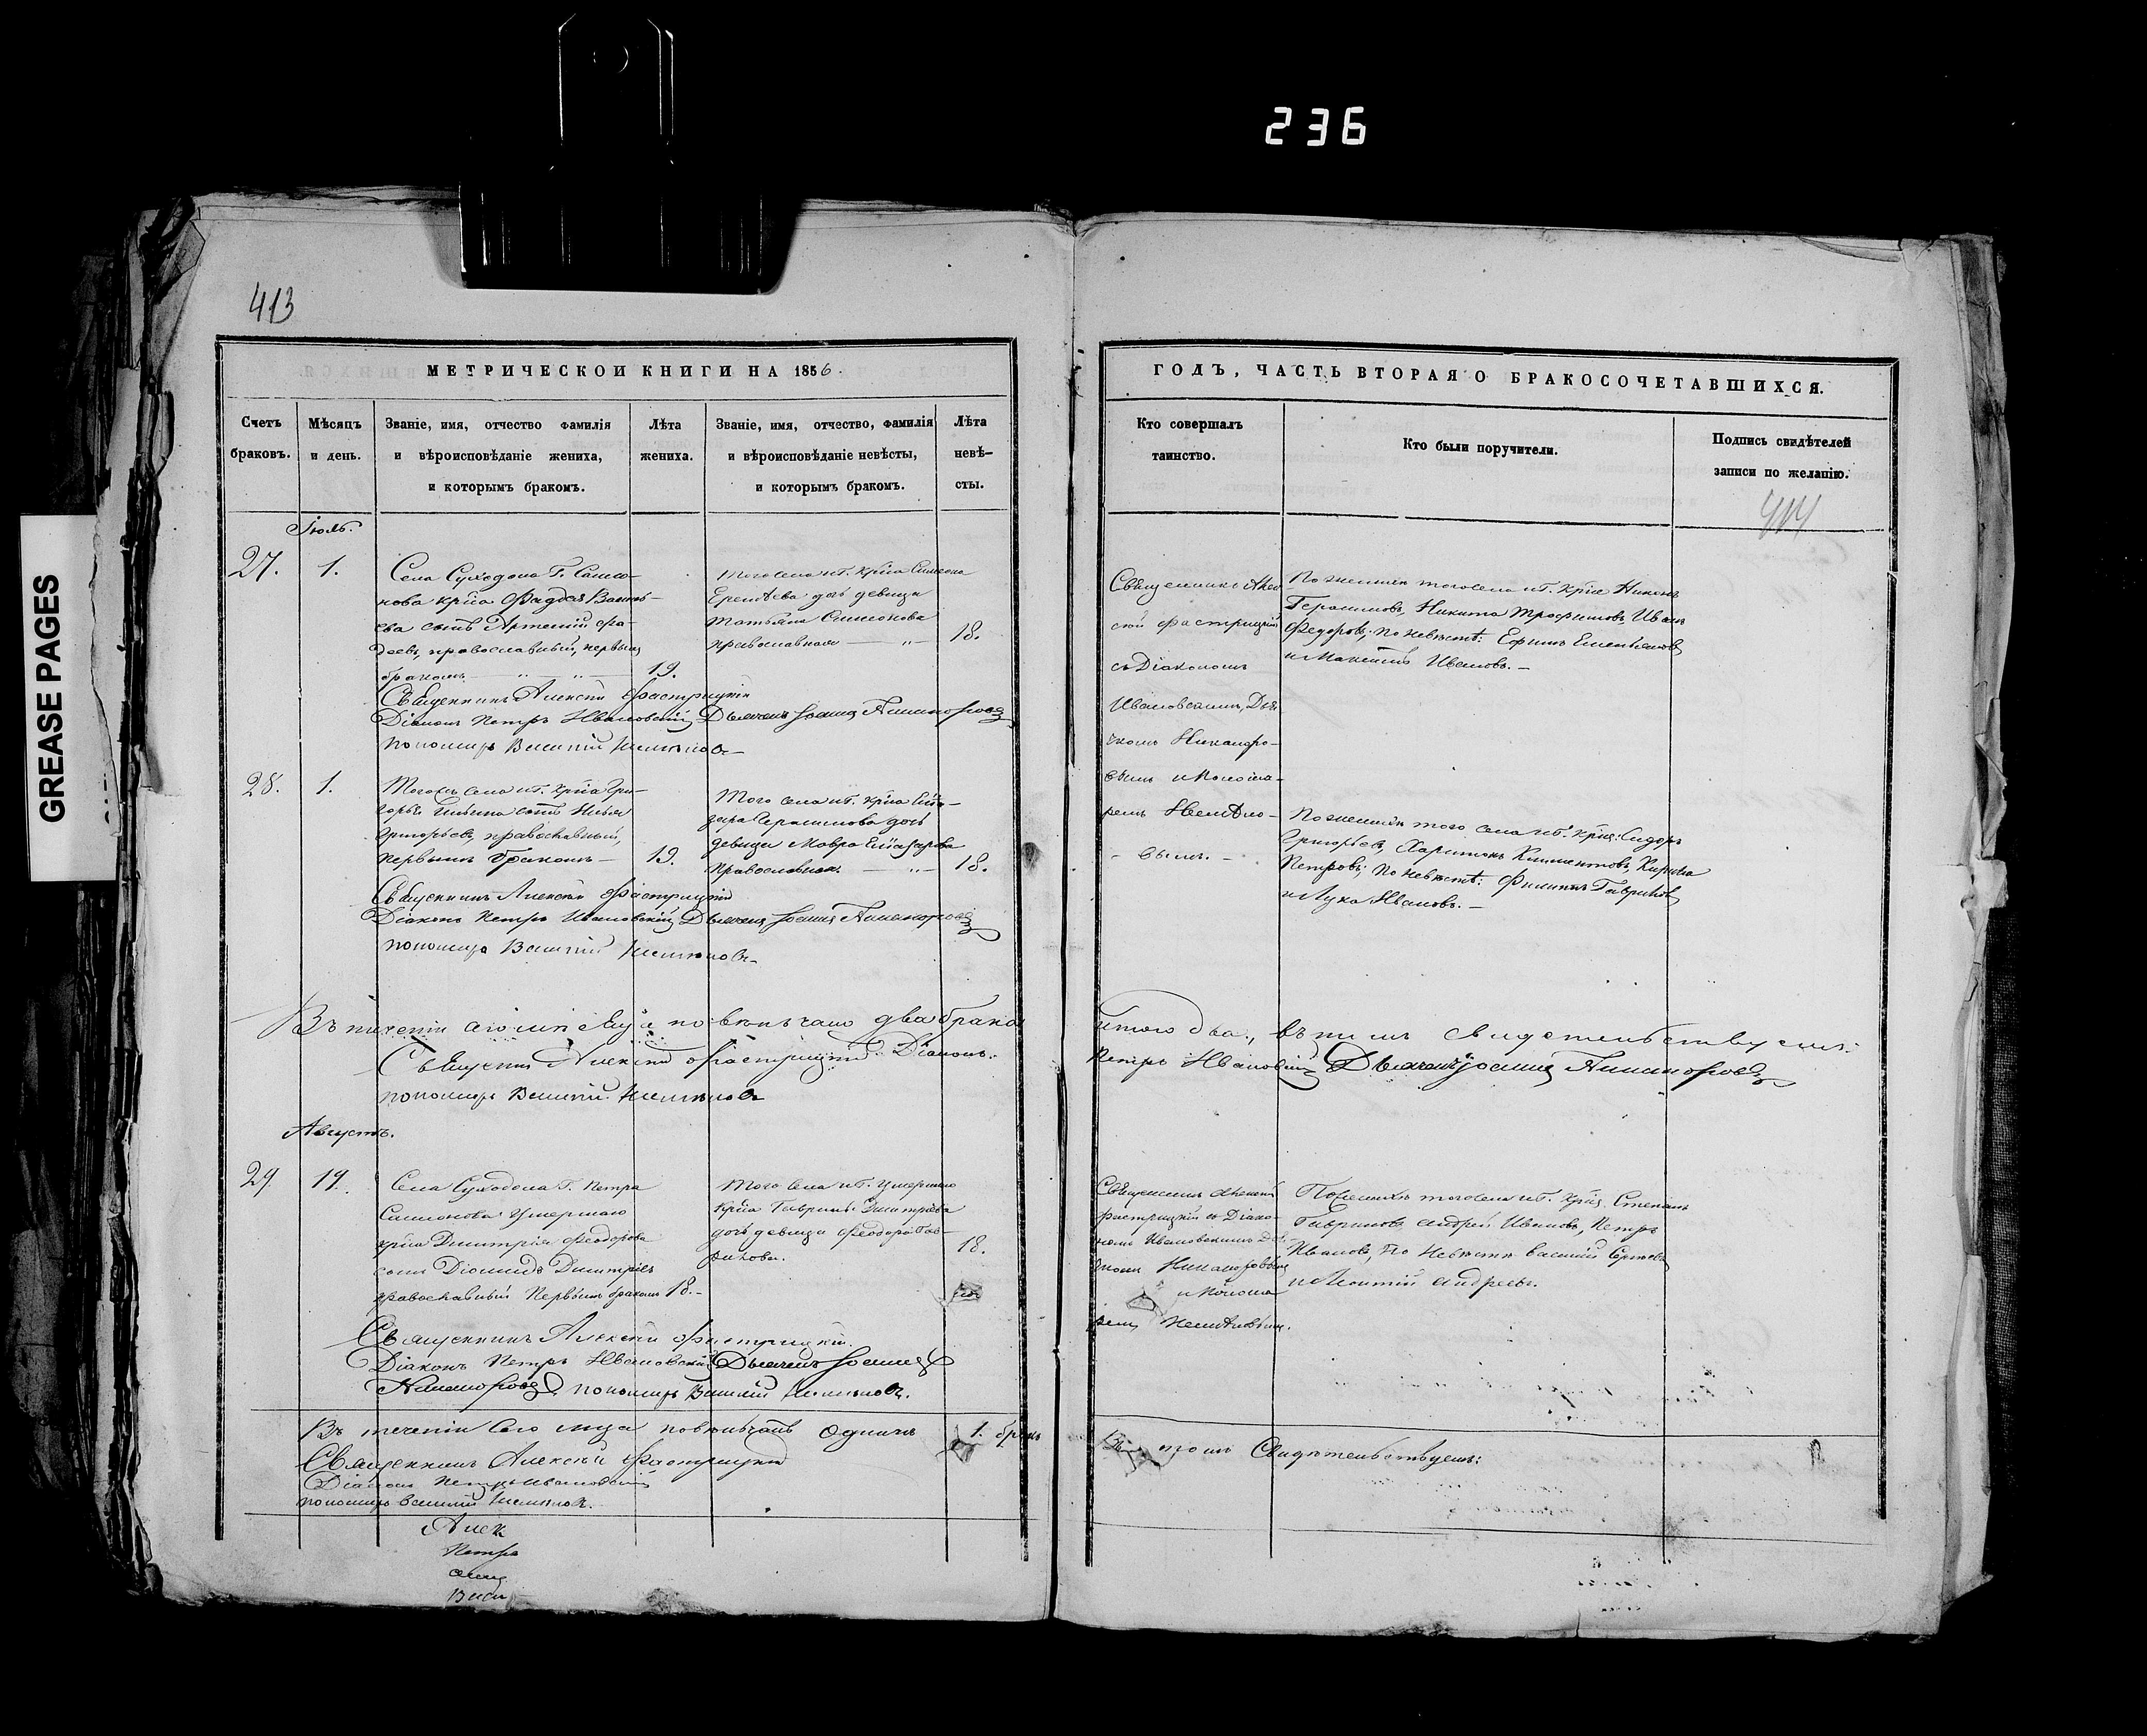 236
GREASE PAGES
413
МЕТРИЧЕСКОЙ КНИГИ НА 1856.
Счетъ браковъ.
Мѣсяцъ и день.
Званіе, имя, отчество фамилія
и вѣроисповѣданіе жениха,
и которымъ бракомъ.
Лѣта жениха.
Званіе, имя, отчество, фамилія
и вѣроисповѣданіе невѣсты,
и которымъ бракомъ.
Лѣта невѣ-
сты.
Іюль.
27.
1.
Села Суходола Г. Самсо-
нова крⷭ҇на Фадея Василь-
ева сынъ Артемій Фа-
деевъ, православный, первымъ
бракомъ
19.
Того села и Г. крⷭ҇на Симеона
дочь девица
Татьяна Симеонова
православная
18.
Священникъ Алексѣй
Діаконъ Петръ Ивановскій Дьячекъ Іоаннъ Никаноровъ
пономарь Василій
28.
1.
Тогожъ села и Г. крⷭ҇на Гри-
горья сынъ Илья
Григорьевъ, православный,
первымъ бракомъ
19.
Того села и Г. крⷭ҇на Елиа-
зара Герасимова дочь
девица Мавра Елиазарова
православная.
18.
Священникъ Алексѣй
Діаконъ Петръ Ивановскій Дьячекъ Іоаннъ Никаноровъ
пономарь Василій
Въ теченіи сего мѣсяца повѣнчано два брака
Священникъ Алексѣй Діаконъ
пономарь Василій
Августъ.
29
19.
Села Суходола Г. Петра
Самсонова умершаго
крⷭ҇на Димитрія Феодорова
сынъ Діомидъ Димитріевъ
православный первымъ бракомъ
18.
Того села и Г. умершаго
крⷭ҇на Гаврилы Димитріева
дочь девица Феодора Гав-
рилова.
18.
Священникъ Алексѣй
Діаконъ Петръ Ивановскій Дьячекъ Іоаннъ
Никаноровъ, пономарь Василій
Въ теченіи сего мца повѣнчанъ одинъ
1. бракъ
Священникъ Алексѣй
Діаконъ Петръ Ивановскій
пономарь Василій
Алек
Петръ
Васи
ГОДЪ, ЧАСТЬ ВТОРАЯ О БРАКОСОЧЕТАВШИХСЯ.
Кто совершалъ
таинство.
Кто были поручители.
Подпись свидѣтелей
записи по желанію.
414
Священникъ Алек-
сѣй
съ Діакономъ
Ивановскимъ, Дья-
чкомъ Никаноро-
вымъ и Понома-
ремъ
По женихѣ того села и Г. крⷭ҇не Никонъ
Герасимовъ, Никита Трофимовъ, Иванъ
Федоровъ; по невѣстѣ: Ефимъ Емельяновъ
и Максимъ Ивановъ.
По женихѣ того села и Г. крⷭ҇не: Сидоръ
Григорьевъ, Харитонъ Климентовъ, Кирила
Петровъ; по невѣстѣ: Филиппъ Гавриловъ
и Лука Ивановъ.
Итого два, въ томъ свидетельствуемъ:
Петръ Ивановскій Дьячекъ Іоаннъ Никаноровъ
Священникъ Алексѣй
съ Діако-
номъ Ивановскимъ Дья-
чкомъ Никаноровымъ
и Понома-
ремъ
По женихѣ того села и Г. крⷭ҇не Степанъ
Гавриловъ, Андрей Ивановъ, Петръ
Ивановъ, по невѣстѣ Василій Сергѣевъ
и Леонтій Андреевъ.
Въ томъ Свидѣтельствуемъ: